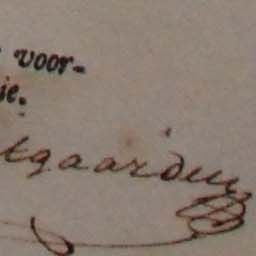 voor-
ie.
gaarden